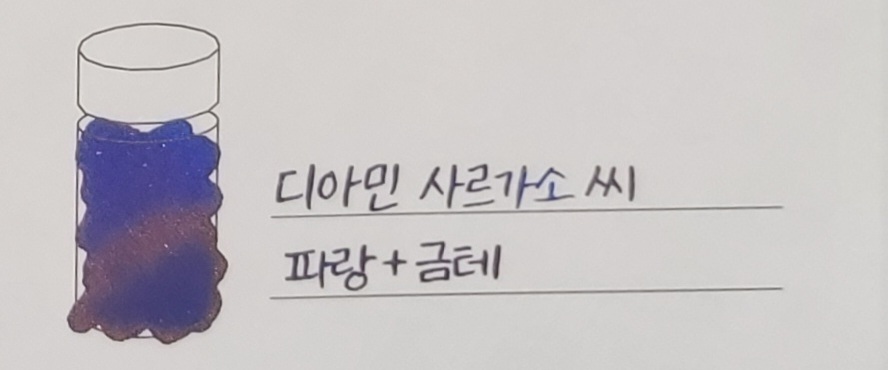 디아민 사르가소 씨
파랑+금테